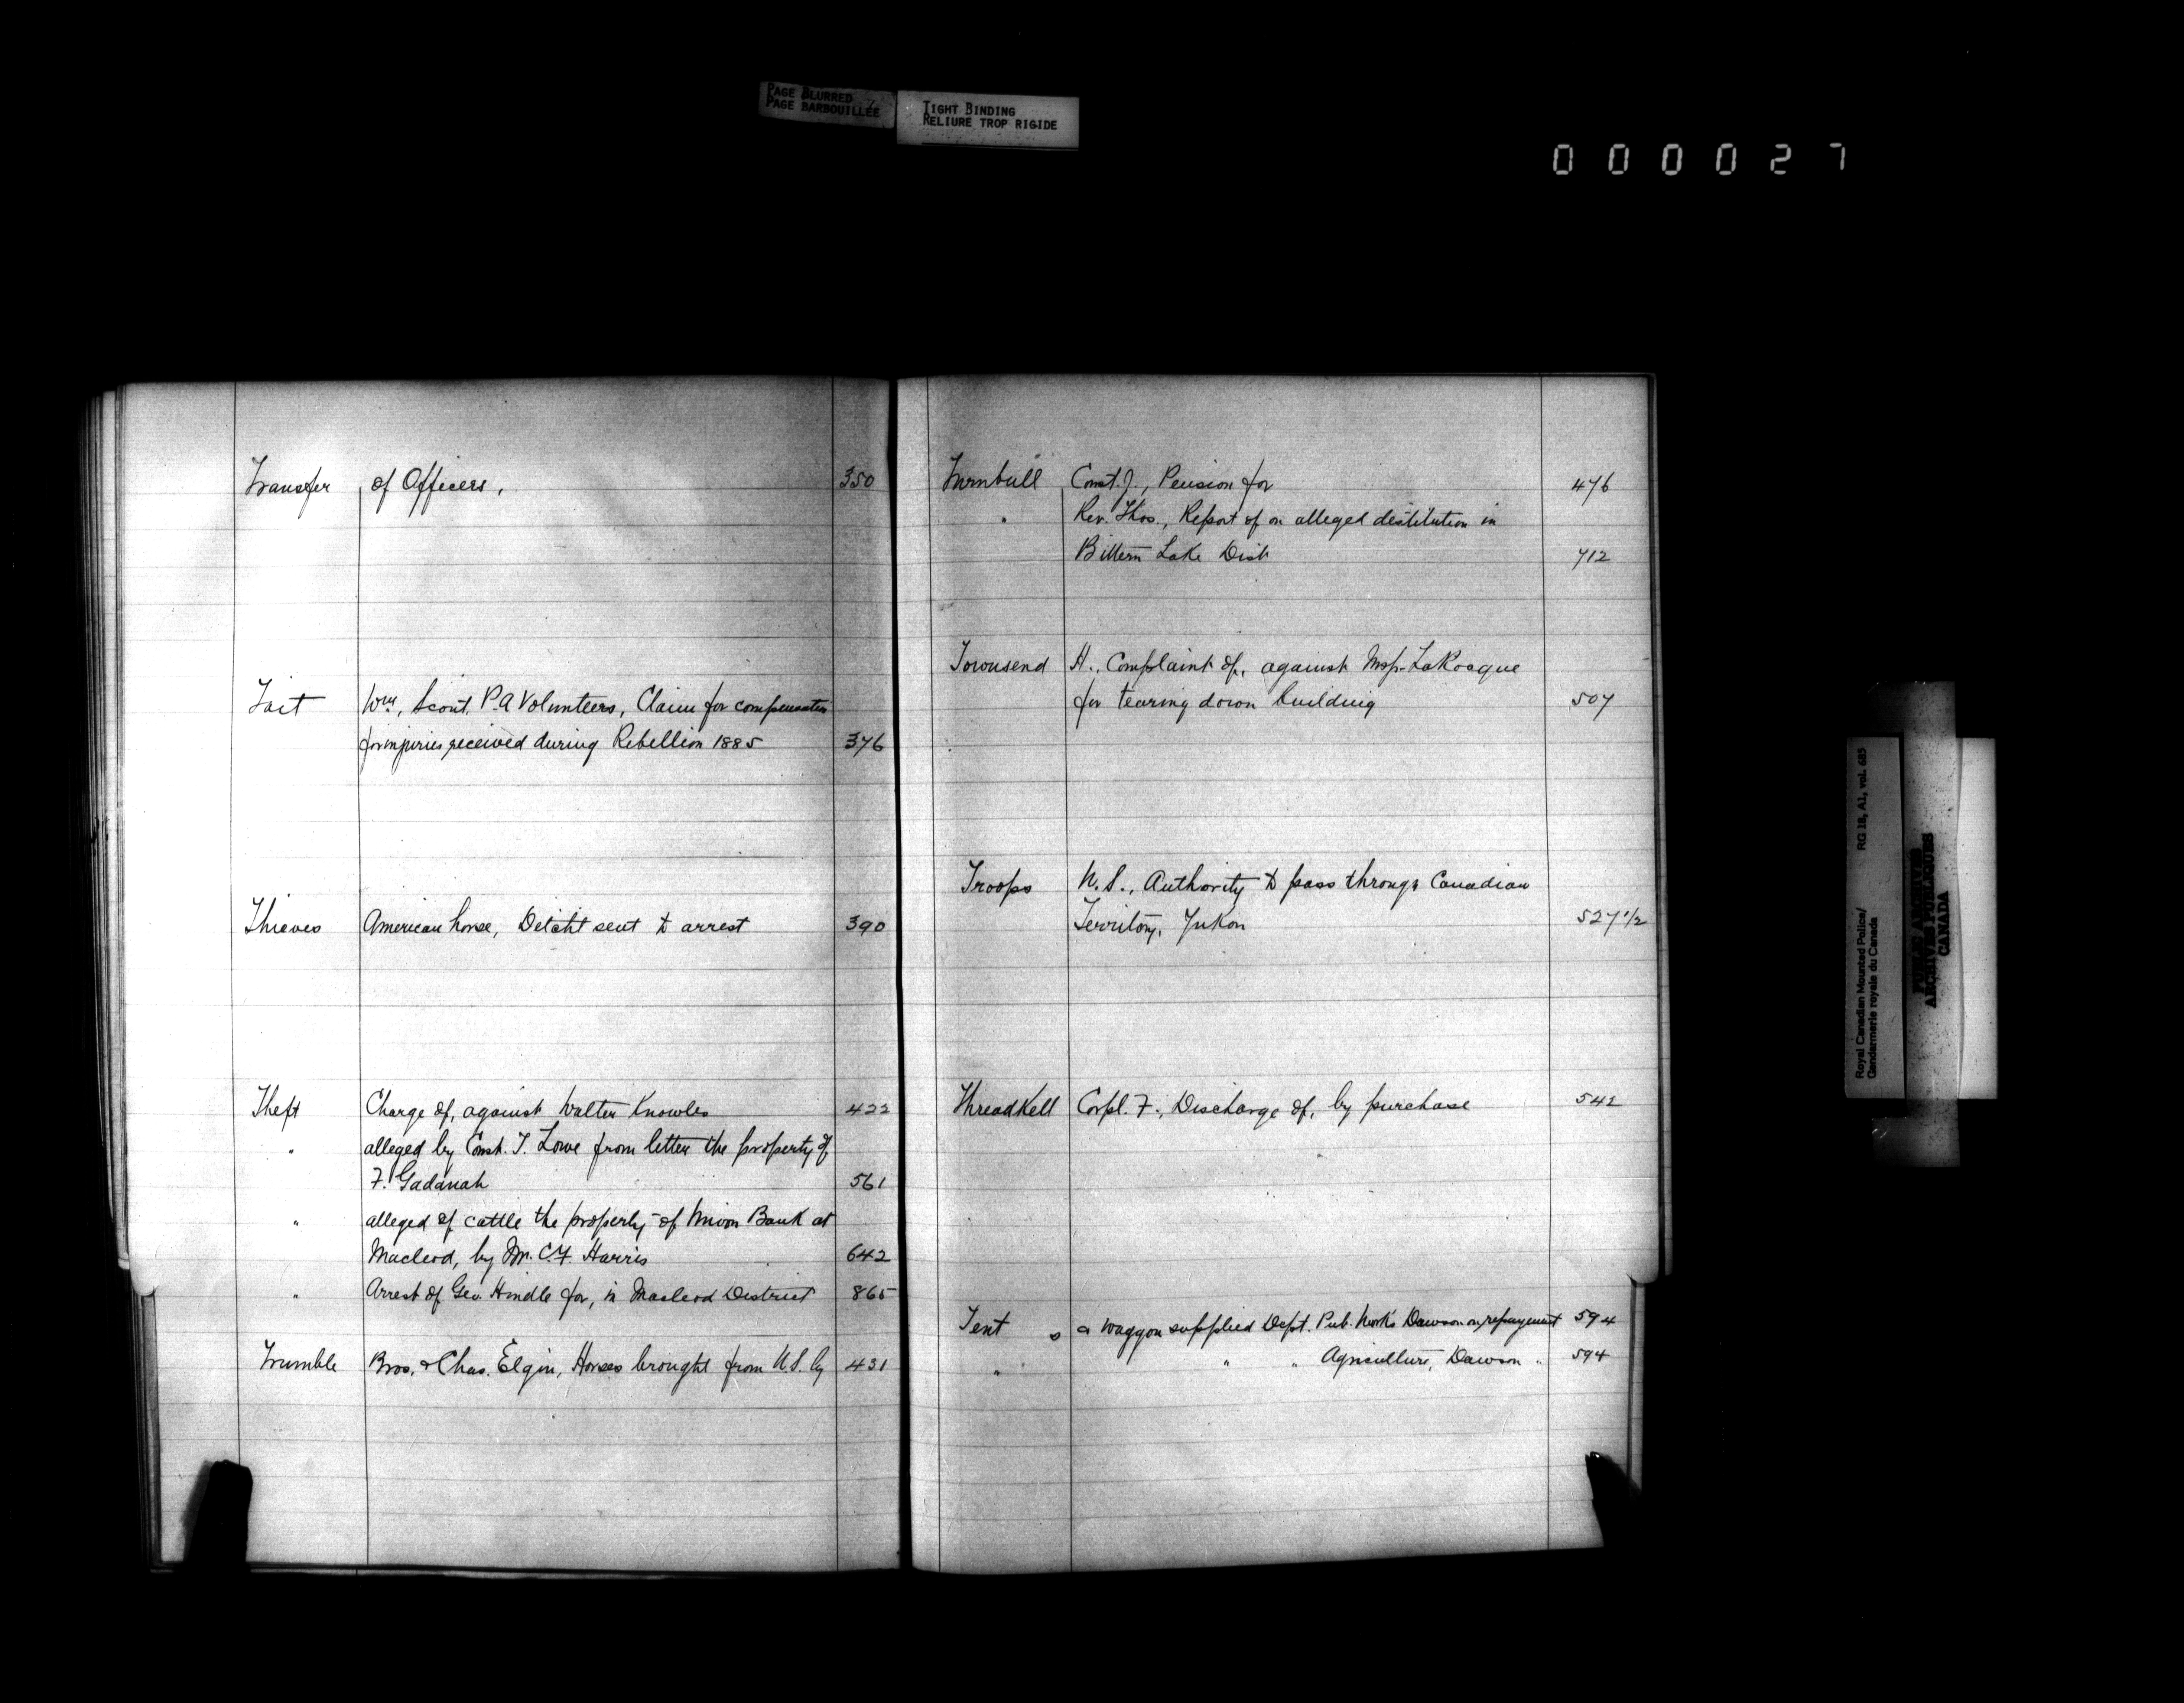 PAGE BLURRED
PAGE BARBOUILLÉE
TIGHT BINDING
RELIURE TROP RIGIDE
000027
Transfer of Officers, 350
Tait Wm, Scout, P.A Volunteers, Claim for compensation
for injuries received during Rebellion 1885 376
Thieves American horse, Detcht sent to arrest 390
Theft Charge of, against Walter Knowles 422
" alleged by Const. T. Lowe from letter the property of
F. Gadanah 561
" alleged of cattle the property of Union Bank at
Macleod, by Mr. C.F. Harris 642
" Arrest of Geo. Hindle for, in Macleod District 865
Trumble Bros. & Chas. Elgin, Horses brought from U.S. by 431
Turnbull Const. J., Pension for 476
" Rev. Thos., Report of on alleged destitution in
Bittern Lake Dist 712
Townsend H., Complaint of, against Insp. LaRocque
for tearing down building 507
Troops U.S., Authority to pass through Canadian
Territory, Yukon 527 1/2
Threadkell Corpl. F., Discharge of, by purchase 542
Tent s a waggon supplied Dept. Pub. Works Dawson on repayment 594
" " " Agriculture, Dawson " 594
Royal Canadian Mounted Police/ RG 18, A1, vol. 685
Gendarmerie royale du Canada
PUBLIC ARCHIVES
ARCHIVES PUBLIQUES
CANADA